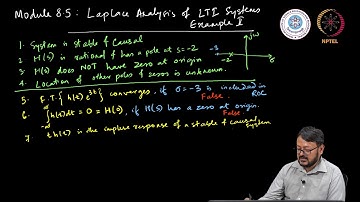 Module 8.5 : Laplace Analysis of LTI Systems
Example 1
NPTEL
1. System is stable & Causal
2. H(s) is rational & has a pole at s=-2
3. H(s) does NOT have zero at origin
4. Location of other poles & zeros is unknown.
-3
jω
-2
σ
5. F.T. {h(t) e^{3t}} converges, if σ=-3 is included in ROC
False.
6. ∫_{-∞}^{∞} h(t)dt = 0 = H(0), if H(s) has a zero at origin.
False.
7. t h(t) is the impulse response of a stable & causal system